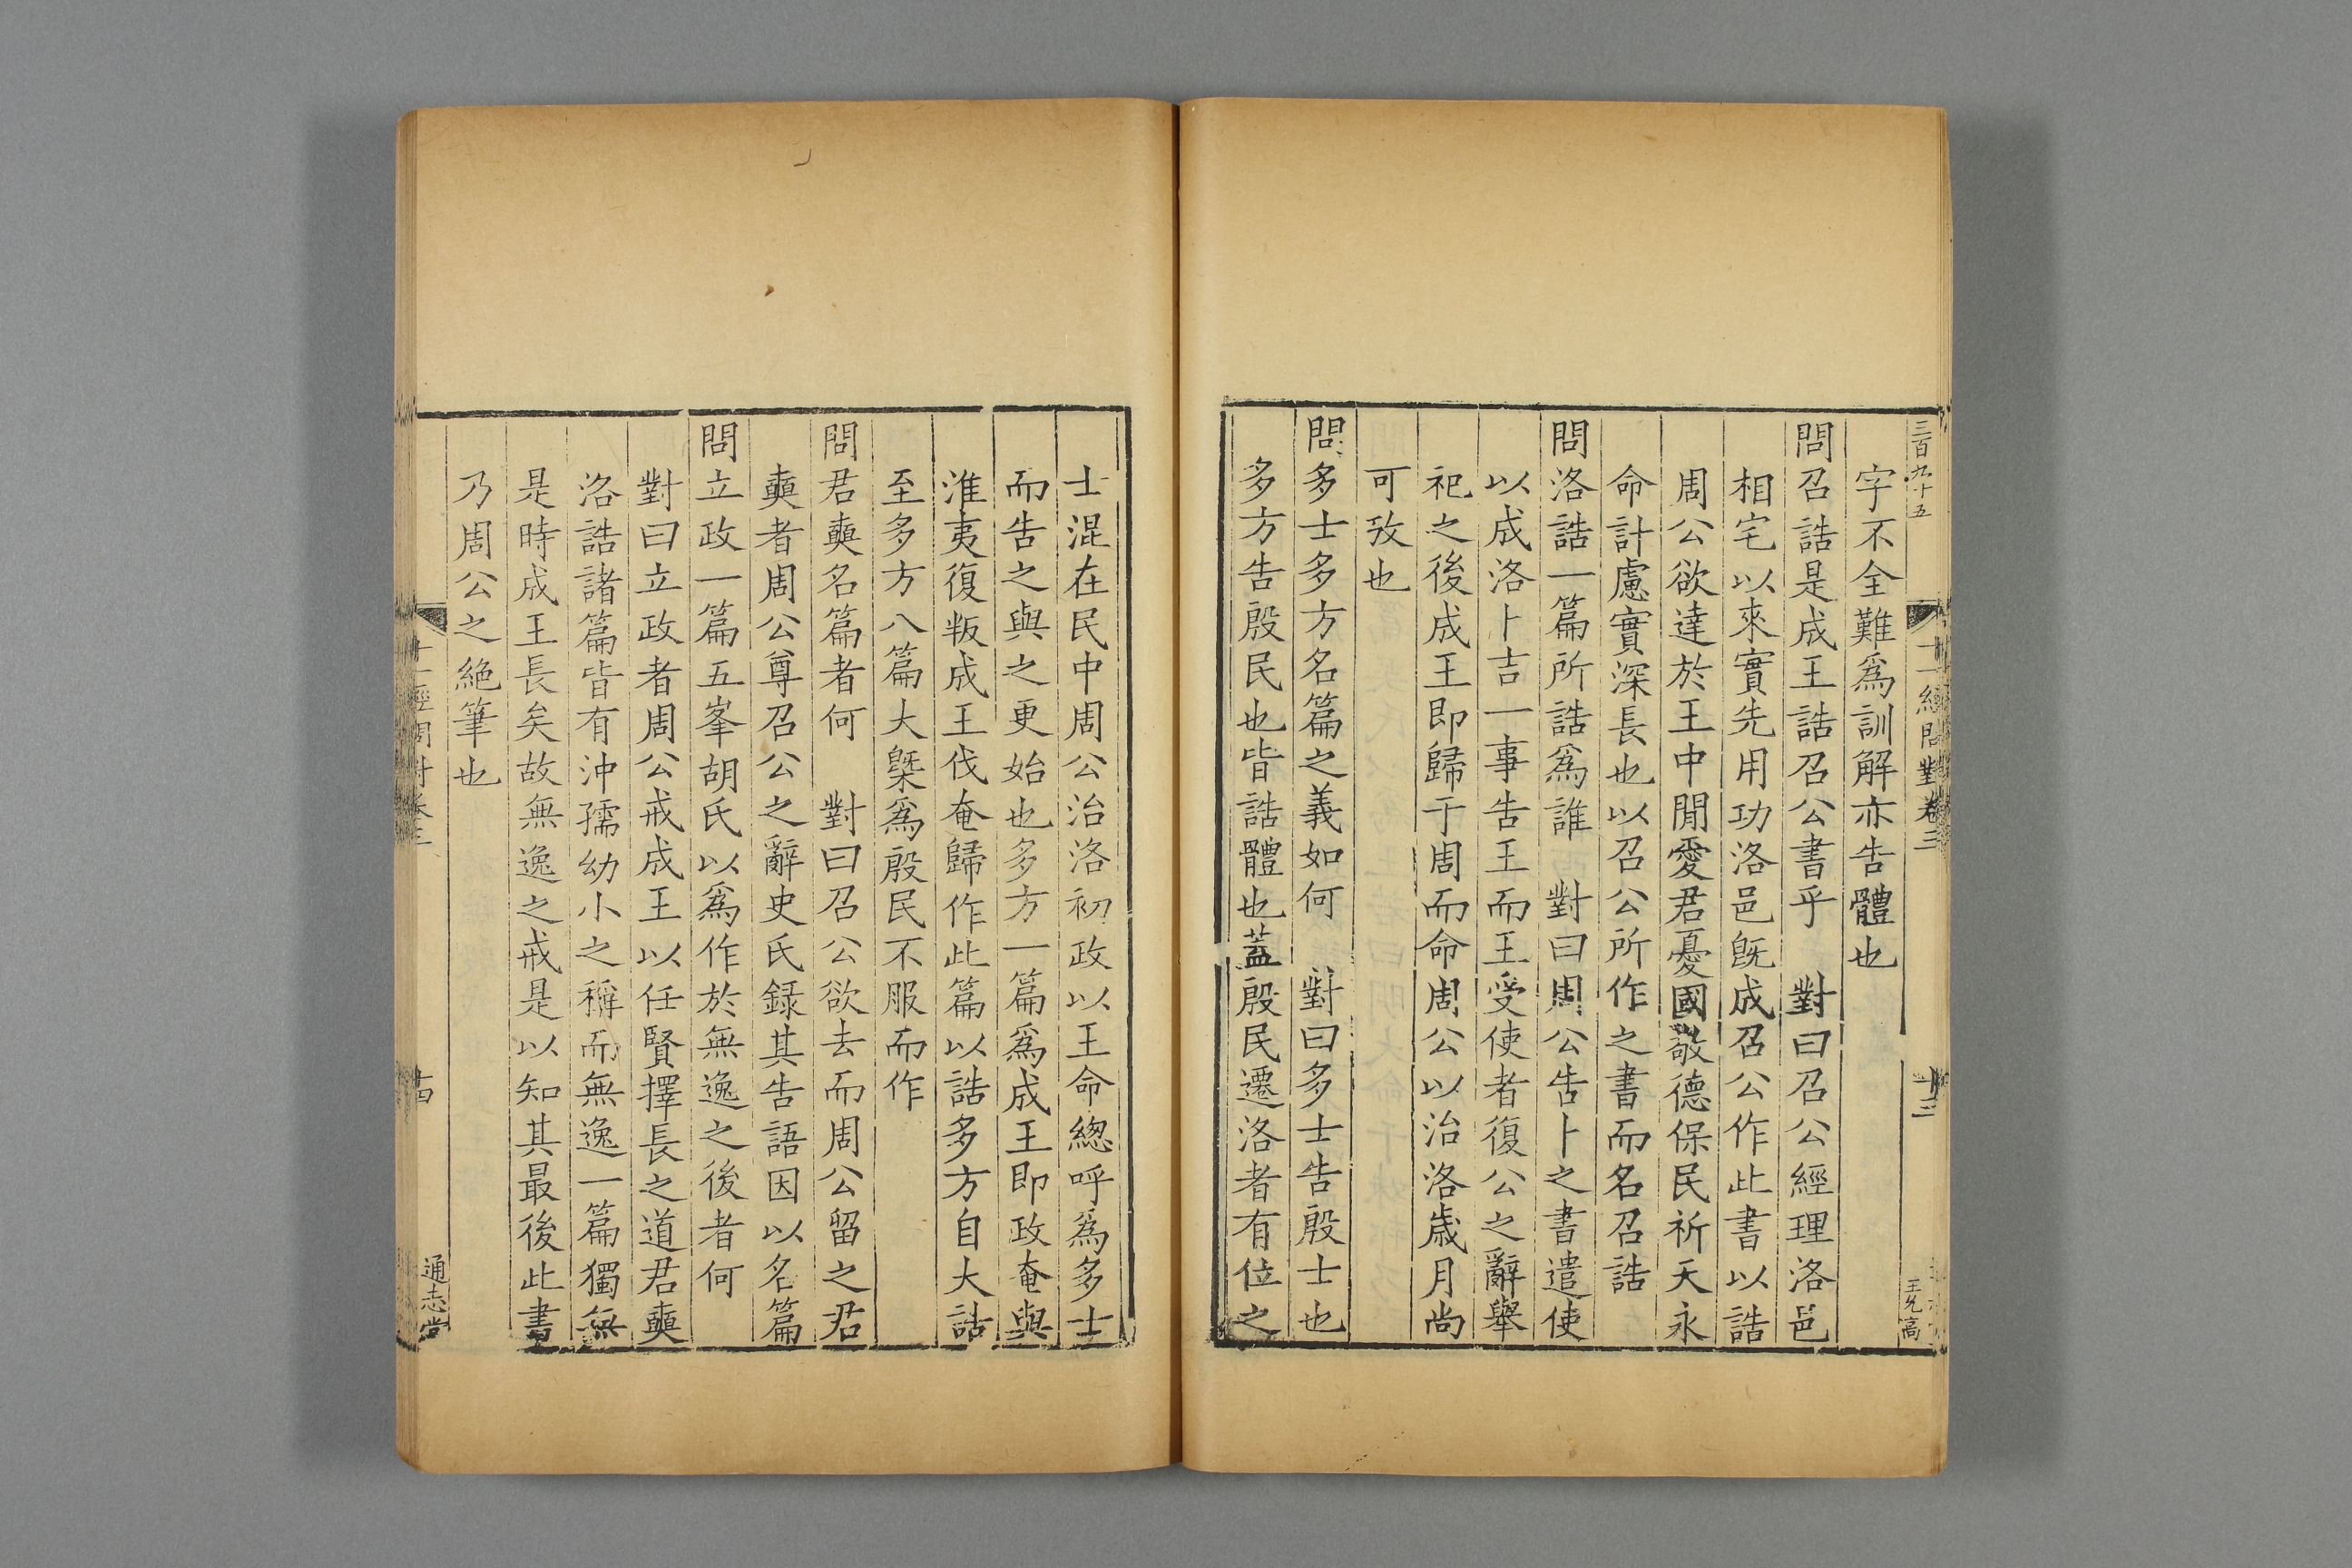 三百九十五
十一經問對卷三
十三
王允高
字不全難爲訓解亦告體也
問召誥是成王誥召公書乎　對曰召公經理洛邑
相宅以來實先用功洛邑旣成召公作此書以誥
周公欲達於王中閒愛君憂國敬德保民祈天永
命計慮實深長也以召公所作之書而名召誥
問洛誥一篇所誥爲誰　對曰周公告卜之書遣使
以成洛卜吉一事告王而王受使者復公之辭舉
祀之後成王即歸于周而命周公以治洛歲月尚
可攷也
問多士多方名篇之義如何　對曰多士告殷士也
多方告殷民也皆誥體也蓋殷民遷洛者有位之
士混在民中周公治洛初政以王命緫呼爲多士
而告之與之更始也多方一篇爲成王即政奄與
淮夷復叛成王伐奄歸作此篇以誥多方自大誥
至多方八篇大槩爲殷民不服而作
問君奭名篇者何　對曰召公欲去而周公留之君
奭者周公尊召公之辭史氏録其告語因以名篇
問立政一篇五峯胡氏以爲作於無逸之後者何
對曰立政者周公戒成王以任賢擇長之道君奭
洛誥諸篇皆有沖孺幼小之稱而無逸一篇獨無
是時成王長矣故無逸之戒是以知其最後此書
乃周公之絶筆也
十一經問對卷三
十四
通志堂